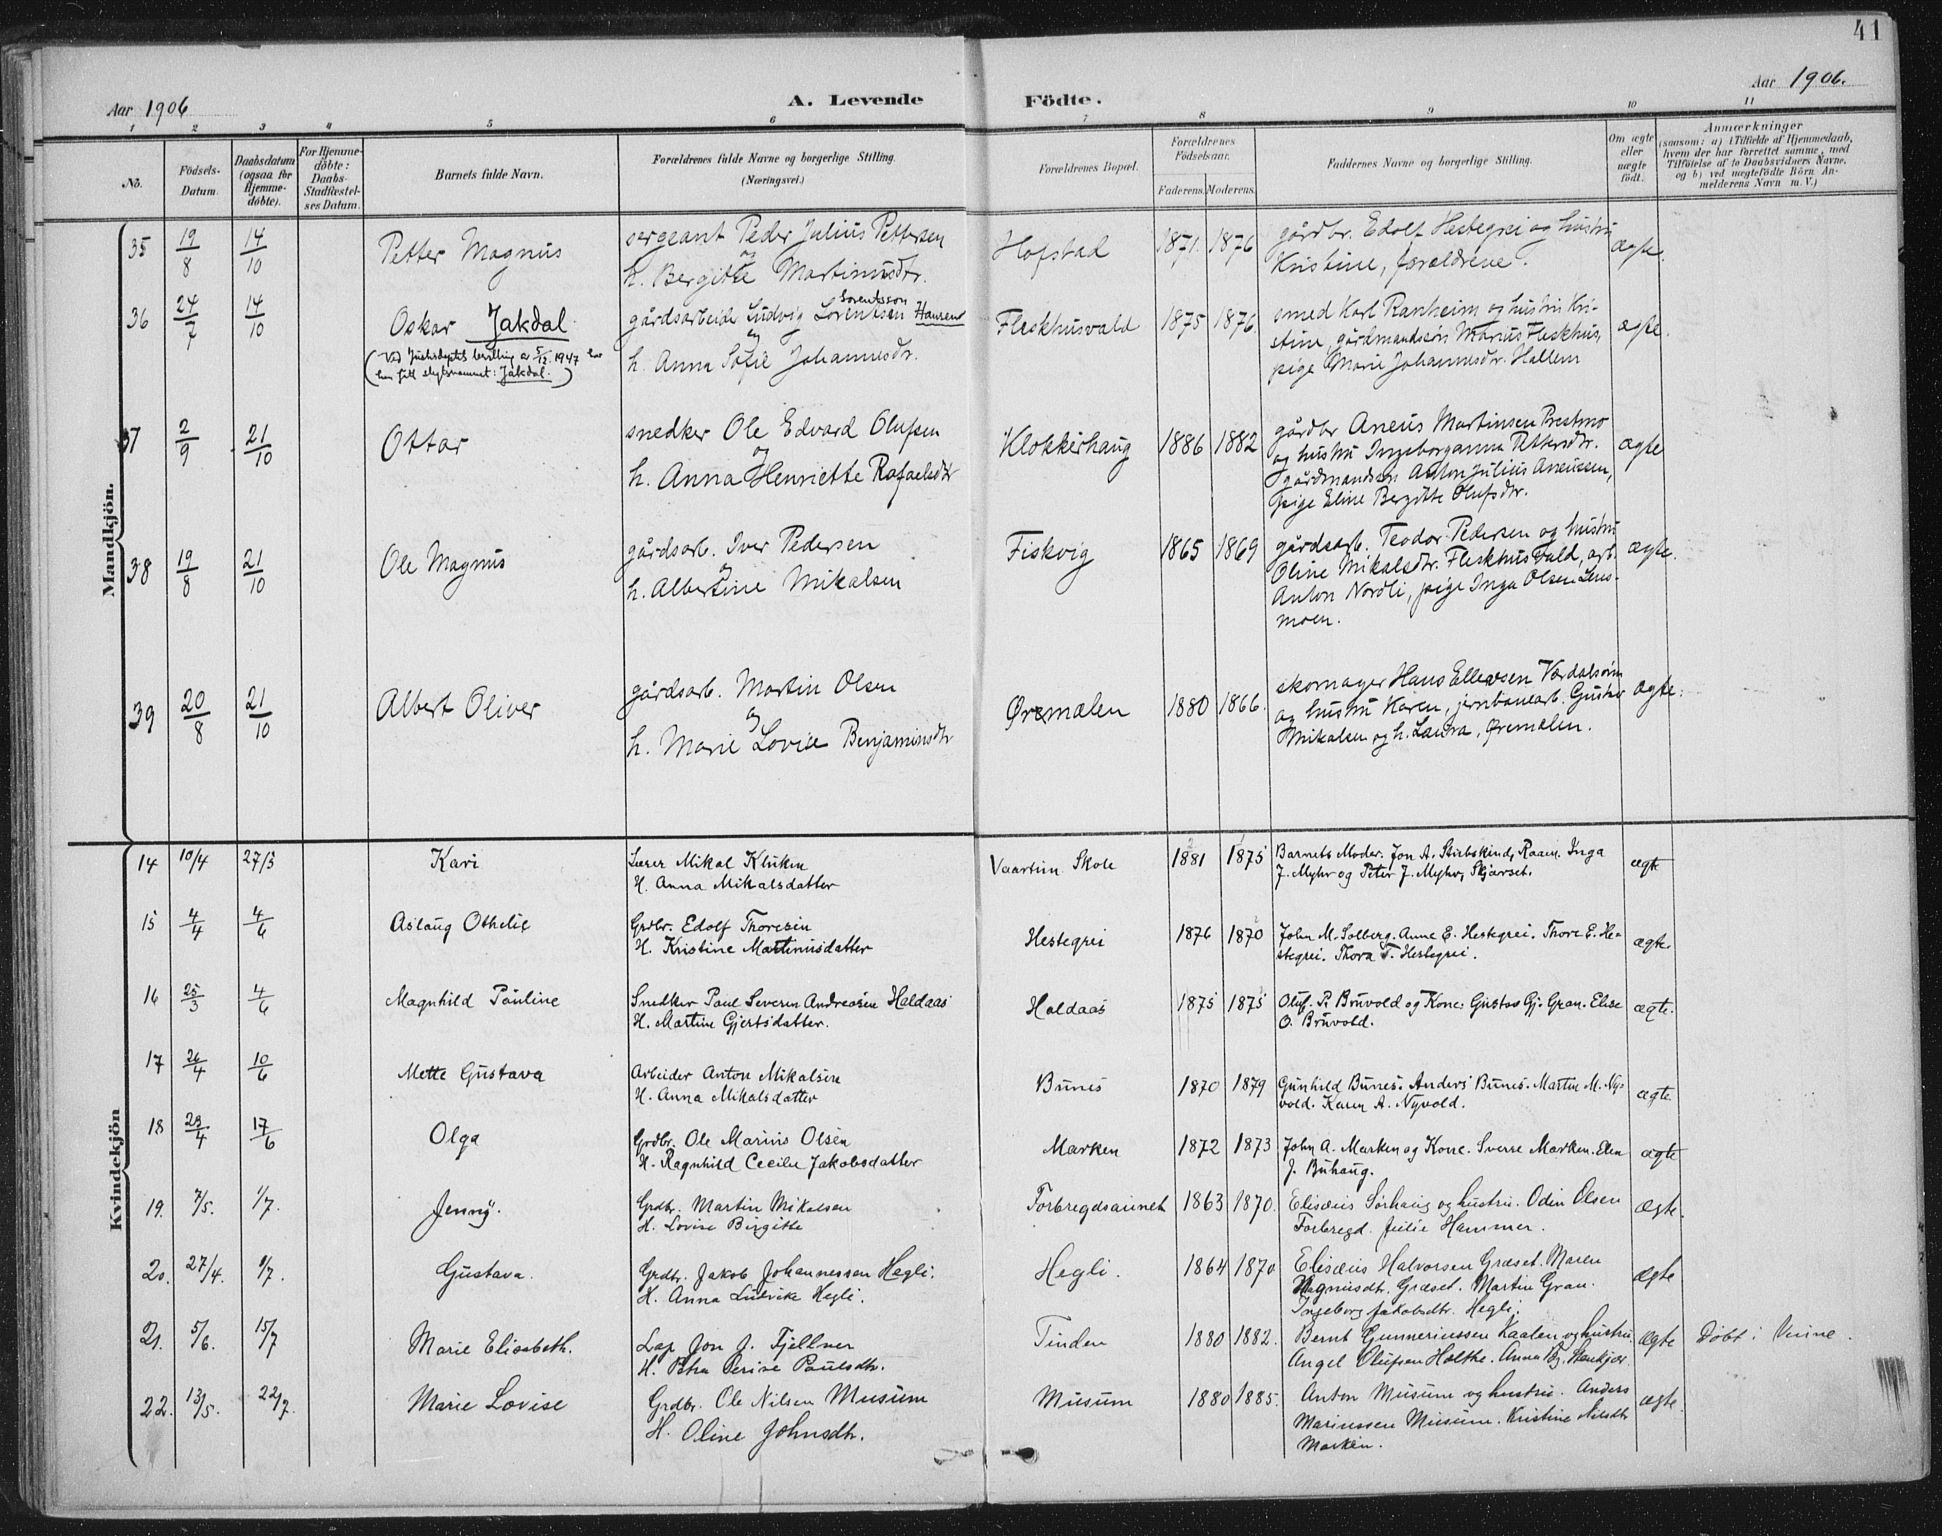 41
Aar 1906
A. Levende Födte.
Aar 1906.
1 2 3 4 5 6 7 8 9 10 11
No.
Födsels-
Datum.
Daabsdatum
(ogsaa for
Hjemme-
döbte).
For Hjemme-
döbte:
Daabs-
Stadfæstel-
ses Datum.
Barnets fulde Navn.
Forældrenes fulde Navne og borgerlige Stilling.
(Næringsvei.)
Forældrenes Bopæl.
Forældrenes
Födselsaar.
Faderens. Moderens.
Faddernes Navne og borgerlige Stilling.
Om ægte
eller
uægte
födt.
Anmærkninger
(saasom: a) i Tilfælde af Hjemmedaab,
hvem der har forrettet samme, med
Tilföielse af to Daabsvidners Navne,
og b) ved uægtefödte Börn An-
melderens Navn m. V.)
Mandkjön.
35 19/8 14/10 Petter Magnus
sergeant Peder Julius Pettersen
og
h. Bergitte Martinusdtr.
Hofstad 1871. 1876
gårdbr. Edolf Hestegrei og hustru
Kristine, forældrene.
ægte.
36 24/7 14/10 Oskar Jakdal
(Ved Justisdeptets bevilling av 5/12.1947 har
han fått slegtsnavnet: Jakdal.)
Lorentsson
gårdsarbeider Ludvig Lorentsen Hansen
og
h. Anna Sofie Johannesdr.
Fleskhusvald 1875 1876
smed Karl Ranheim og hustru Kri-
stine, gårdmandssøn Marius Fleskhus,
pige Marie Johannesdr. Hallem
ægte.
37 2/9 21/10 Ottar
snedker Ole Edvard Olufsen
og
h. Anna Henriette Rafaelsdtr
Klokkerhaug 1886 1882
gårdbr Aneus Martinsen Prestmo
og hustru Ingeborganna Pettersdtr.
gårdmandssøn Anton Julius Aneussen,
pige Eline Bergitte Olufsdtr.
ægte
38 19/8 21/10 Ole Magnus
gårdsarb. Iver Pedersen
og
h. Albertine Mikalsen
Fiskvig 1865 1869
gårdsarb. Teodor Pedersen og hustru
Oline Mikalsdtr. Fleskhus vald, arb.
Anton Nordli, pige Inga Olsen Lens-
moen.
ægte.
39 20/8 21/10 Albert Oliver
gårdsarb. Martin Olsen
og
h. Marie Lovise Benjaminsdtr
Øremælen 1880 1866.
skomager Hans Ellevsen Værdalsøren
og hustru Karen, jernbanearb. Gustav
Mikalsen og h. Laura, Øremælen.
ægte.
Kvindekjön
14 10/4 27/5 Kari
Lærer Mikal Kluken
H. Anna Mikalsdatter
Vaartun Skole 1881 1875
Barnets Moder. Jon A. Raaen. Inga
J. Myhr og Peter J. Myhr, Skjørset.
ægte
15 4/4 4/6 Aslaug Othelie
Grdbr. Edolf Thoresen
H. Kristine Martinusdatter
Hestegrei 1876 1870
John M. Solberg. Anne E. Hestegrei. Thore E. He-
stegrei. Thora T. Hestegrei.
ægte.
16 25/3 4/6 Magnhild Pauline
Snedker Paul Severin Andreasen Haldaas
H. Martine Gjertsdatter.
Haldaas 1875 1875
Oluf P. Bruvold og Kone. Gustav Gj. Gran. Elise
O. Bruvold.
ægte.
17 26/4 10/6 Mette Gustava
Arbeider Anton Mikalsen
H. Anna Mikalsdatter
Bunes 1870 1879
Gunhild Bunes. Anders Bunes. Martin M. Ny-
vold. Karen A. Nyvold.
ægte
18 23/4 17/6 Olga
Grdbr. Ole Marius Olsen
H. Ragnhild Cecilie Jakobsdatter
Marken 1872 1873
John A. Marken og Kone. Sverre Marken. Elen
J. Buhaug.
ægte
19. 7/5. 1/7. Jenny.
Grdbr. Martin Mikalsen
H. Lovise Birgitte
Forbregdsaunet 1863 1870.
Elisæus Sørhaug og hustru. Odin Olsen
Forbregd. Julie Hammer.
ægte.
20. 27/4. 1/7. Gustava.
Grdbr. Jakob Johannessen Hegli.
H. Anna Ludvike Hegli.
Hegli. 1864 1870
Elisæus Halvorsen Græset. Maren
Magnusdt. Græset. Martin Gran.
Ingeborg Jakobsdtr. Hegli.
ægte
21. 5/6. 15/7 Marie Elisabeth.
Lap Jon J. Fjellner
H. Petra Serine Paulsdtr.
Tinden 1880 1882.
Bernt Gunneriussen Kaalen og hustru.
Angel Olufsen Holthe. Anna Steinkjer.
ægte Døbt i Vuine.
22. 13/5. 22/7. Marie Lovise
Grdbr. Ole Nilsen Musum
H. Oline Johnsdtr.
Musum 1880 1885.
Anton Musum og hustru. Anders
Mariussen Musum. Kristine Nilsdtr
Marken.
ægte.